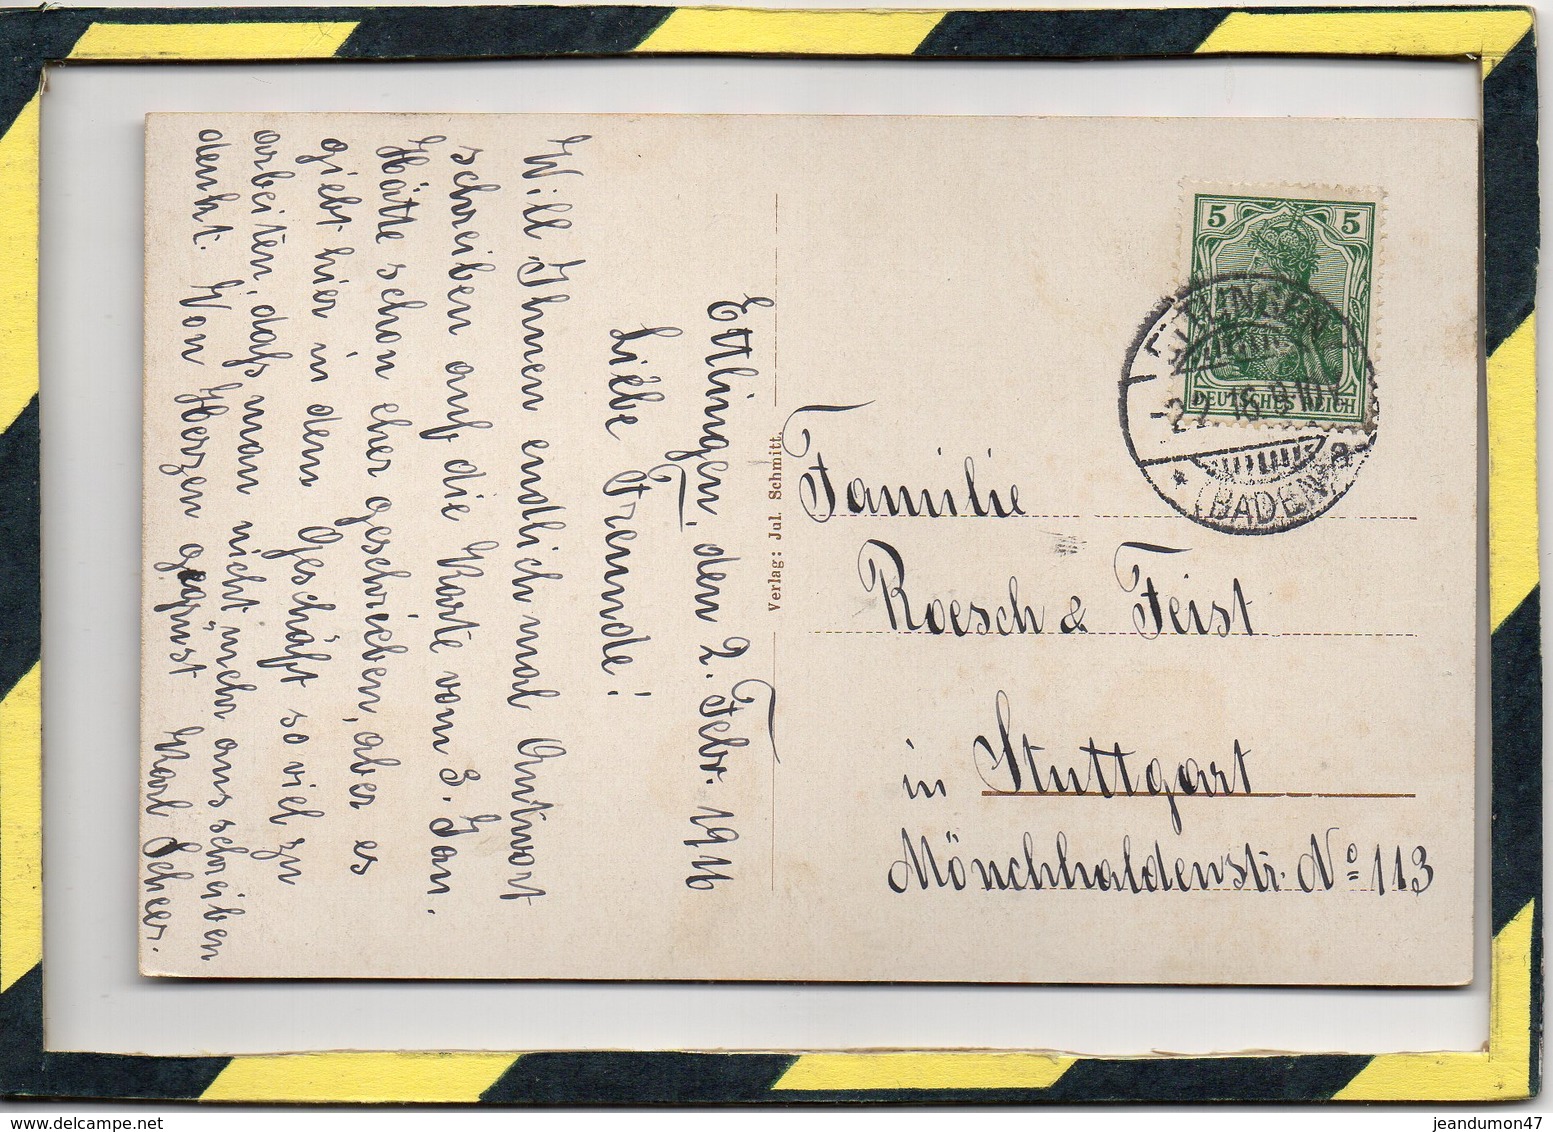 Ettlingen, den 2. Febr. 1916
Liebe Freunde!
Will Ihnen endlich mal Antwort
schreiben auf die Karte vom 3. Jan.
Hätte schon eher geschrieben, aber es
giebt hier in dem Geschäft so viel zu
arbeiten, daß man nicht mehr ans schreiben
denkt. Von Herzen gegrüst Karl Scheer.
Verlag: Jul. Schmitt.
5 5
DEUTSCHES REICH
ETTLINGEN
-2.2.16.9-10V.
* (BADEN) a
Familie
Roesch & Feist
in Stuttgart
Mönchhaldenstr. No 113
jeandumon47